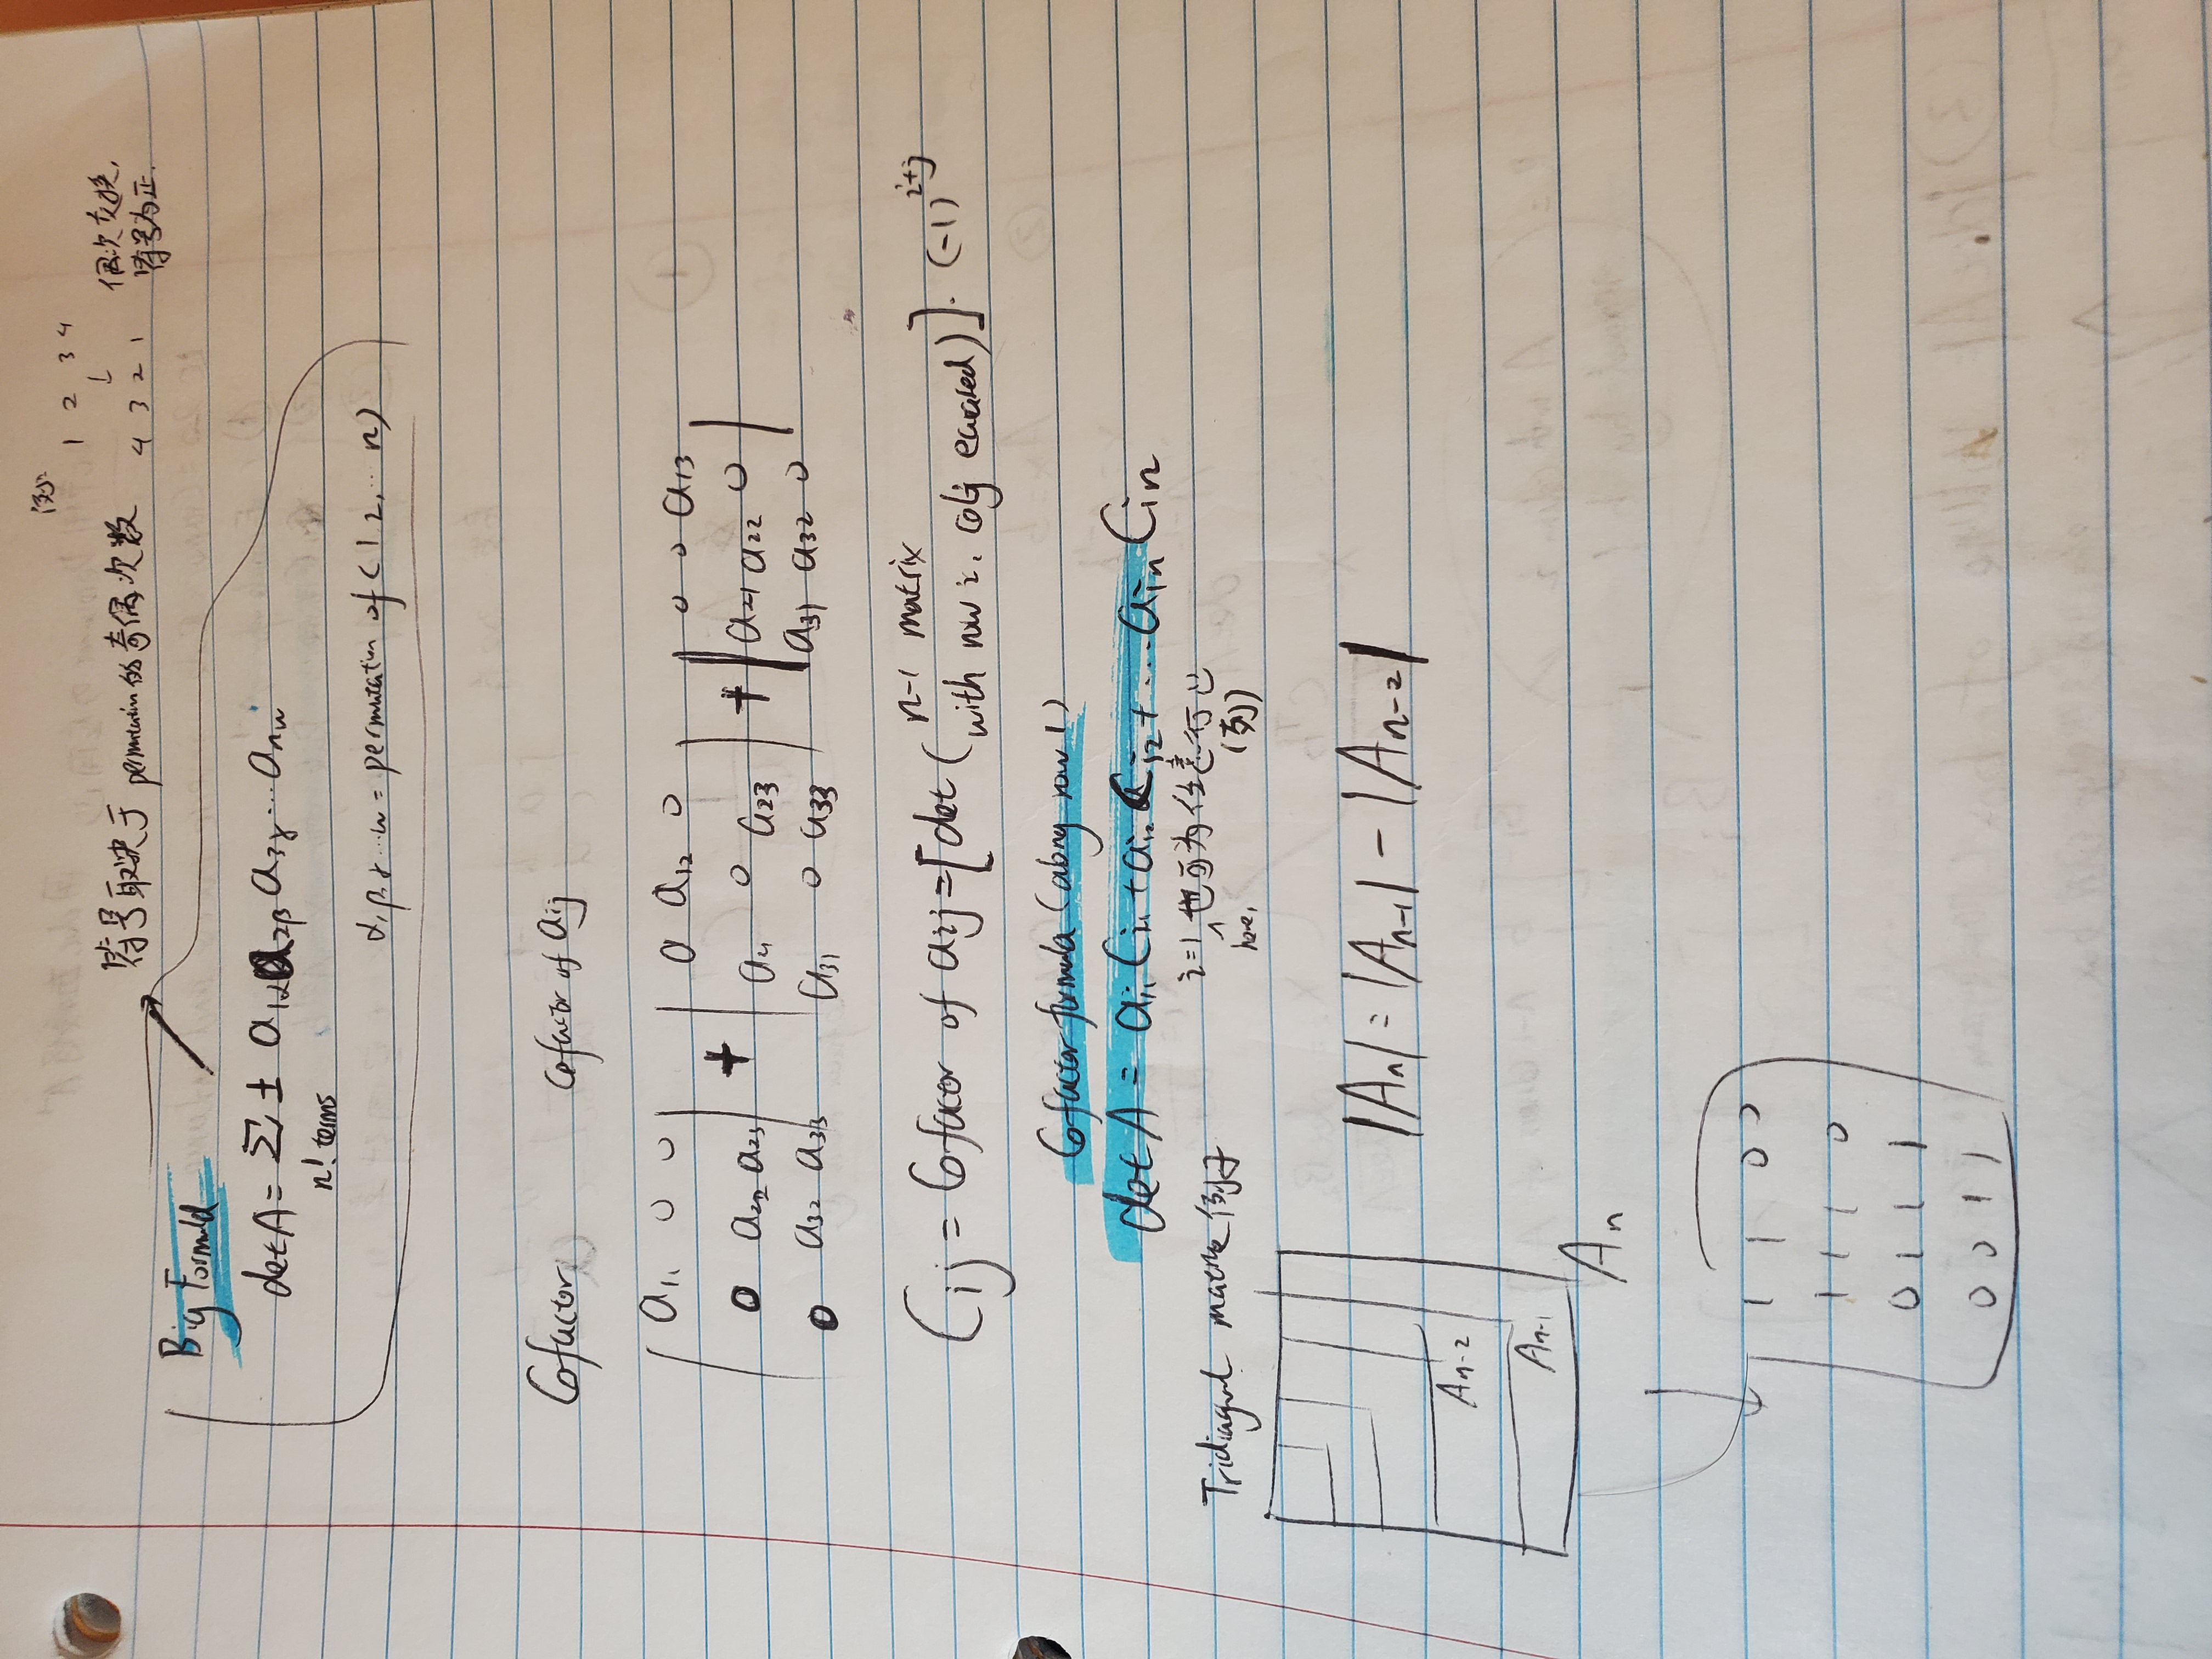 例:
1 2 3 4
↓
4 3 2 1
偶次交换,
符号为正.
符号取决于 permutation 的奇偶次数
Big Formula
det A = Σ ± a1α a2β a3γ ... anω
n! terms
α, β, γ ... ω = permutation of (1 2, ... n)
Cofactor Cofactor of aij
| a11 0 0 | + | 0 a12 0 | + | 0 0 a13 |
| 0 a22 a23 | | a21 0 a23 | | a21 a22 0 |
| 0 a32 a33 | | a31 0 a33 | | a31 a32 0 |
Cij = Cofactor of aij = [det ( n-1 matrix
with row i, col j erased )] · (-1)^i+j
Cofactor formula (along row 1)
det A = ai1 Ci1 + ai2 Ci2 + ... ain Cin
i=1 也可为任意行
here, (列)
Tridiagonal matrix 例子
|An| = |An-1| - |An-2|
An-2
An-1
An
1 1 0 0
1 1 1 0
0 1 1 1
0 0 1 1